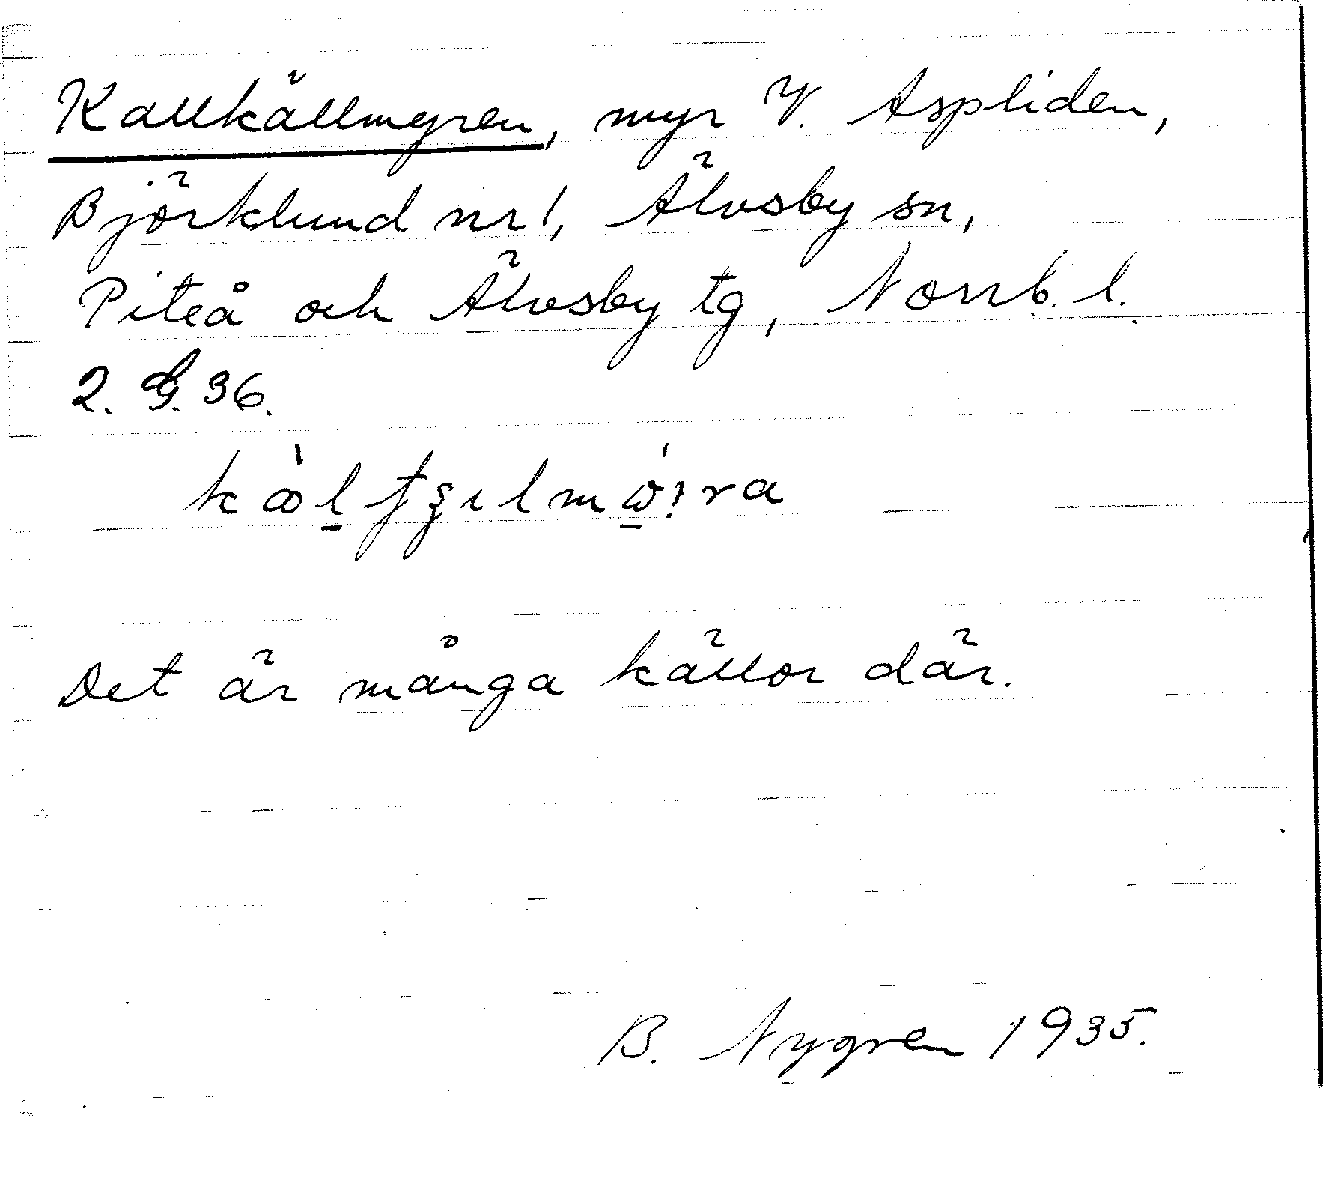 Kallkällmyren, myr V. Aspliden,
Björklund nr 1, Älvsby sn,
Piteå och Älvsby tg, Norrb. l.
2. G. 36.
Det är många källor där.
B. Nygren 1935.